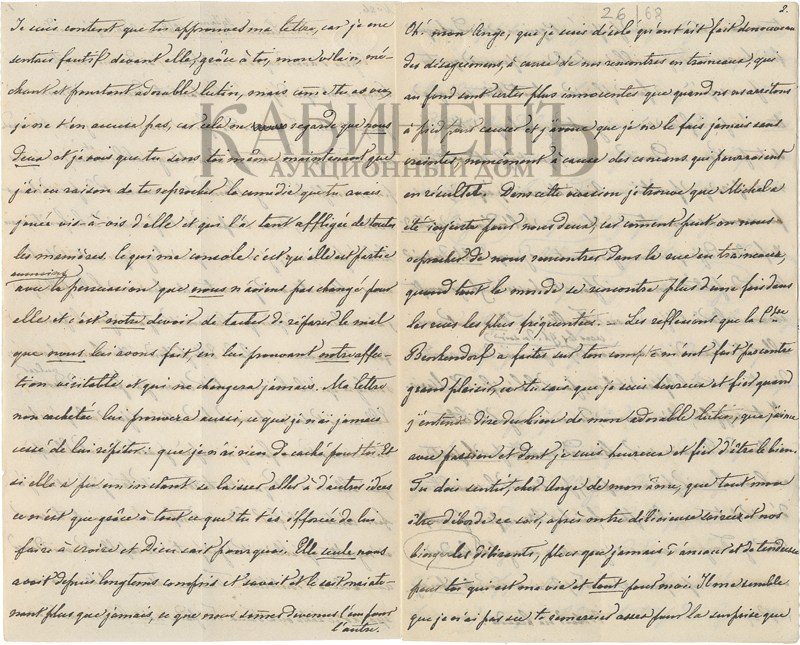 Je suis content que tu approuves ma lettre, car je me
sentais fautif devant elle, grâce à toi, mon vilain, mé-
chant et pourtant adorable lutin, mais comme tu as vu,
je ne t'en accuse pas, car cela ne regarde que nous
deux et je vois que tu sens toi même maintenant que
j'ai eu raison de te reprocher la comédie que tu avais
jouée vis-à-vis d'elle et qui l'a tant affligée de toutes
les manières. Ce qui me console c'est qu'elle est partie
au moins
avec la persuasion que nous n'avions pas changé pour
elle et c'est notre devoir de tacher de réparer le mal
que nous lui avons fait, en lui prouvant notre affec-
tion véritable et qui ne changera jamais. Ma lettre
non cachetée lui prouvera aussi, ce que je n'ai jamais
cessé de lui répéter: que je n'ai rien de caché pour toi. Et
si elle a pu un instant se laisser aller à d'autres idées
ce n'est que grâce à tout ce que tu t'es efforcée de lui
faire à croire et Dieu sait pourquoi. Elle seule nous
avait depuis longtems compris et savait et le sait mainte-
nant plus que jamais, ce que nous sommes devenus l'un pour
l'autre.
26/68
2.
Oh! mon Ange, que je suis désolé qu'on ait fait de nouveau
des désagrémens, à cause de nos rencontres en traineaux, qui
au fond sont certes plus innocentes que quand nous arretons
à pied pour causer et j'avoue que je ne le fais jamais sans
crainte, nommément à cause des cancans qui pourraient
en résulter. Dans cette occasion je trouve que Michel a
été injuste pour nous deux, car comment peut-on nous
reprocher de nous rencontrer dans la rue en traineaux,
quand tout le monde se rencontre plus d'une fois dans
les rues les plus fréquentées. – Les reflexions que la C-tesse
Benkendorf a faites sur ton compte m'ont fait par contre
grand plaisir, car tu sais que je suis heureux et fier quand
j'entends dire du bien de mon adorable lutin, que j'aime
avec passion et dont je suis heureux et fier d'être le bien.
Tu dois sentir, cher Ange de mon âme, que tout mon
être déborde ce soir, après notre délicieuse soirée et nos
bingerles délirants, plus que jamais d'amour et de tendresse
pour toi qui est ma vie et tout pour moi. Il me semble
que je n'ai pas su te remercier assez pour la surprise que
КАБИНЕТЪ
АУКЦИОННЫЙ ДОМ